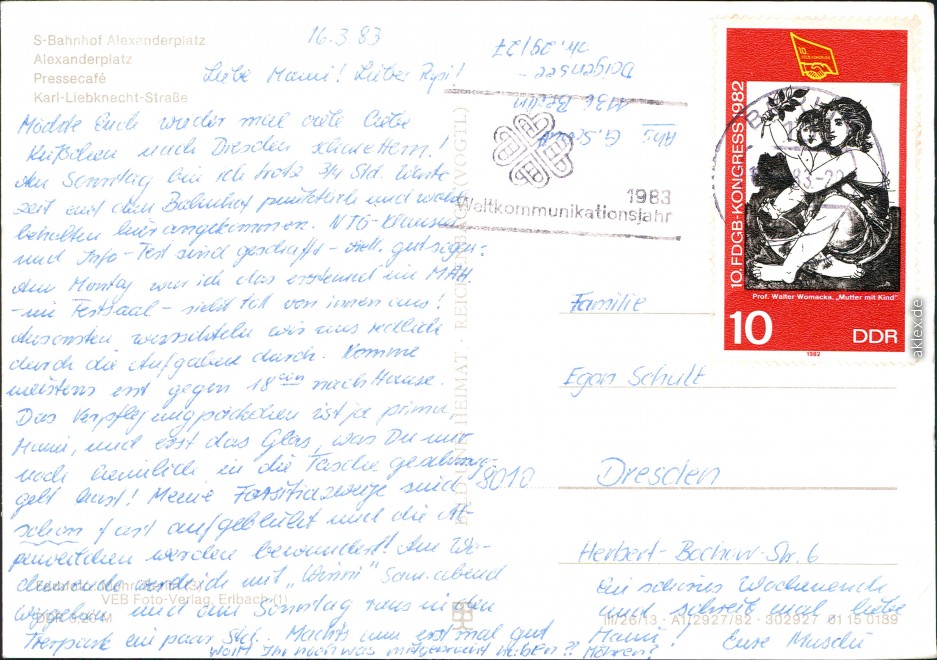 S-Bahnhof Alexanderplatz
Alexanderplatz
Pressecafé
Karl-Liebknecht-Straße
16.3.83
Liebe Mami! Lieber Papi!
Möchte Euch wieder mal viele liebe
Küßchen nach Dresden schmettern!
Am Sonntag bin ich trotz 3/4 Std. Warte
zeit auf dem Bahnhof pünktlich und wohl
behalten hier angekommen. NTG-Klausur
und Info-Test sind geschafft - gut sogar.
Am Montag war ich das erstemal im MAH.
- im Festsaal - sieht toll von innen aus!
Ansonsten wir uns redlich
durch die Aufgaben durch. Komme
meistens erst gegen 18 nach Hause.
Das Verpflegungspäckchen ist ja prima,
Mami, und erst das Glas, was Du mir
noch heimlich in die Tasche geschmug-
gelt hast! Meine Forsythiazweige sind
schon fast aufgeblüht und die Al-
penveilchen werden bewundert! Am Wo-
chenende werde ich mit "Winni" Sonnabend
weggehen und am Sonntag raus in den
Tierpark ein paar Std. Macht's nun erstmal gut
Wollt Ihr noch was mitgebracht haben??
Abs. G. Schult
1136 Berlin
Dolgensee-
str. 29/27
1983
Weltkommunikationsjahr
10. FDGB-KONGRESS 1982
Prof. Walter Womacka, „Mutter mit Kind"
10
DDR
1982
Familie
Egon Schult
8010 Dresden
Herbert-Bochow-Str. 6
Ein schönes Wochenende
und schreibt mal liebe
Mami! Eure Muschi
BILD UND HEIMAT · REICHENBACH (VOGTL)
VEB Foto-Verlag, Erlbach (1)
III/26/13 · A1/2927/82 · 302927 01 15 0189
aklex.de